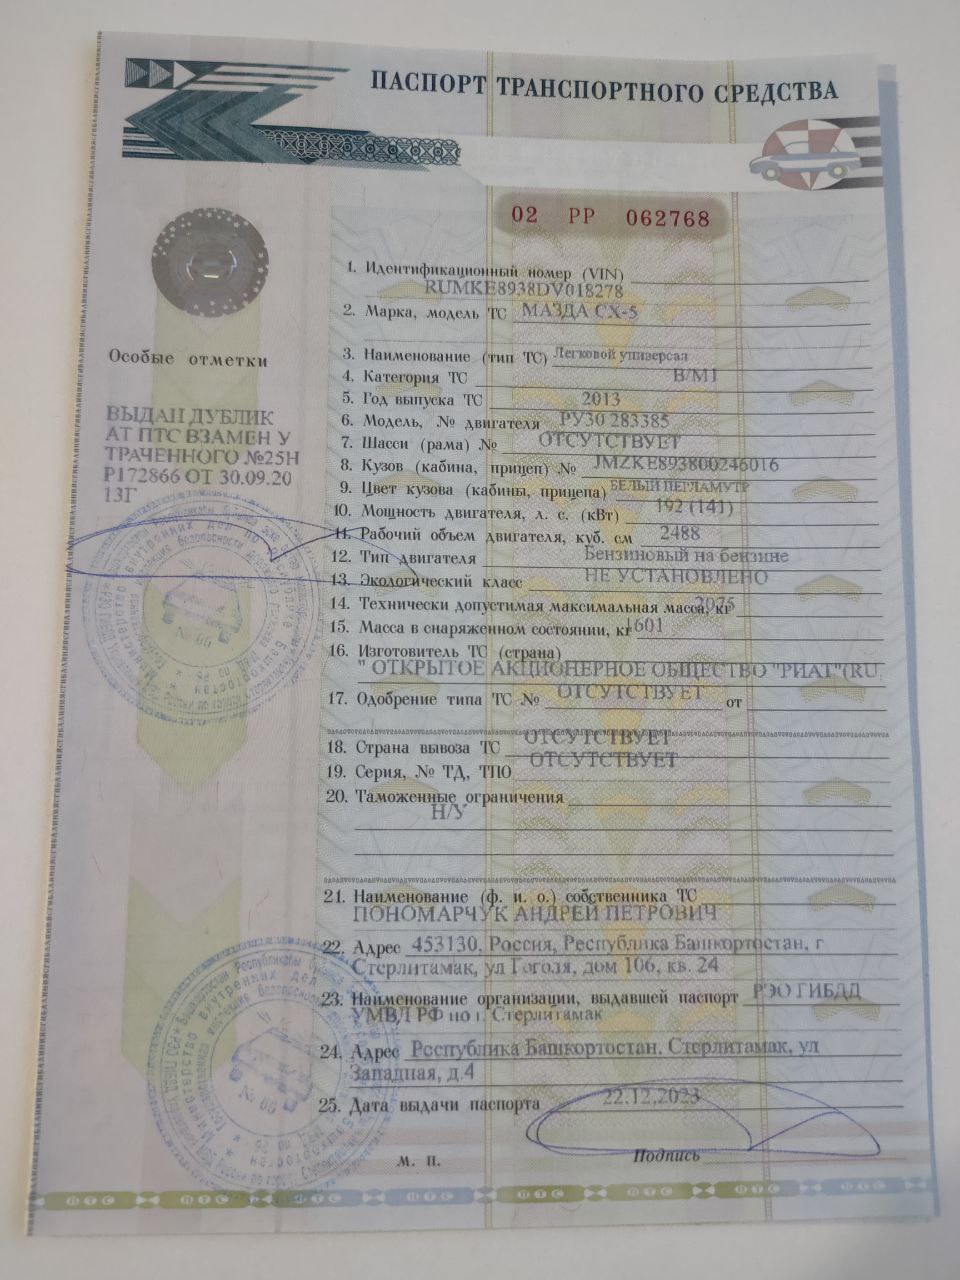 ПАСПОРТ ТРАНСПОРТНОГО СРЕДСТВА
02 РР 062768
1. Идентификационный номер (VIN)
RUMKE8938DV018278
2. Марка, модель ТС МАЗДА СХ-5
3. Наименование (тип ТС) Легковой универсал
4. Категория ТС В/М1
5. Год выпуска ТС 2013
6. Модель, № двигателя РУ30 283385
7. Шасси (рама) № ОТСУТСТВУЕТ
8. Кузов (кабина, прицеп) № JMZKE893800246016
9. Цвет кузова (кабины, прицепа) БЕЛЫЙ ПЕРЛАМУТР
10. Мощность двигателя, л. с. (кВт) 192 (141)
11. Рабочий объем двигателя, куб. см 2488
12. Тип двигателя Бензиновый на бензине
13. Экологический класс НЕ УСТАНОВЛЕНО
14. Технически допустимая максимальная масса, кг 2075
15. Масса в снаряженном состоянии, кг 1601
16. Изготовитель ТС (страна)
" ОТКРЫТОЕ АКЦИОНЕРНОЕ ОБЩЕСТВО "РИАТ"(RU
17. Одобрение типа ТС № ОТСУТСТВУЕТ от
18. Страна вывоза ТС ОТСУТСТВУЕТ
19. Серия, № ТД, ТПО ОТСУТСТВУЕТ
20. Таможенные ограничения
Н/У
21. Наименование (ф. и. о.) собственника ТС
ПОНОМАРЧУК АНДРЕЙ ПЕТРОВИЧ
22. Адрес 453130, Россия, Республика Башкортостан, г
Стерлитамак, ул Гоголя, дом 106, кв. 24
23. Наименование организации, выдавшей паспорт РЭО ГИБДД
УМВД РФ по г. Стерлитамак
24. Адрес Республика Башкортостан, Стерлитамак, ул
Западная, д.4
25. Дата выдачи паспорта 22.12.2023
М. П. Подпись
Особые отметки
ВЫДАН ДУБЛИК
АТ ПТС ВЗАМЕН У
ТРАЧЕННОГО №25Н
Р172866 ОТ 30.09.20
13Г